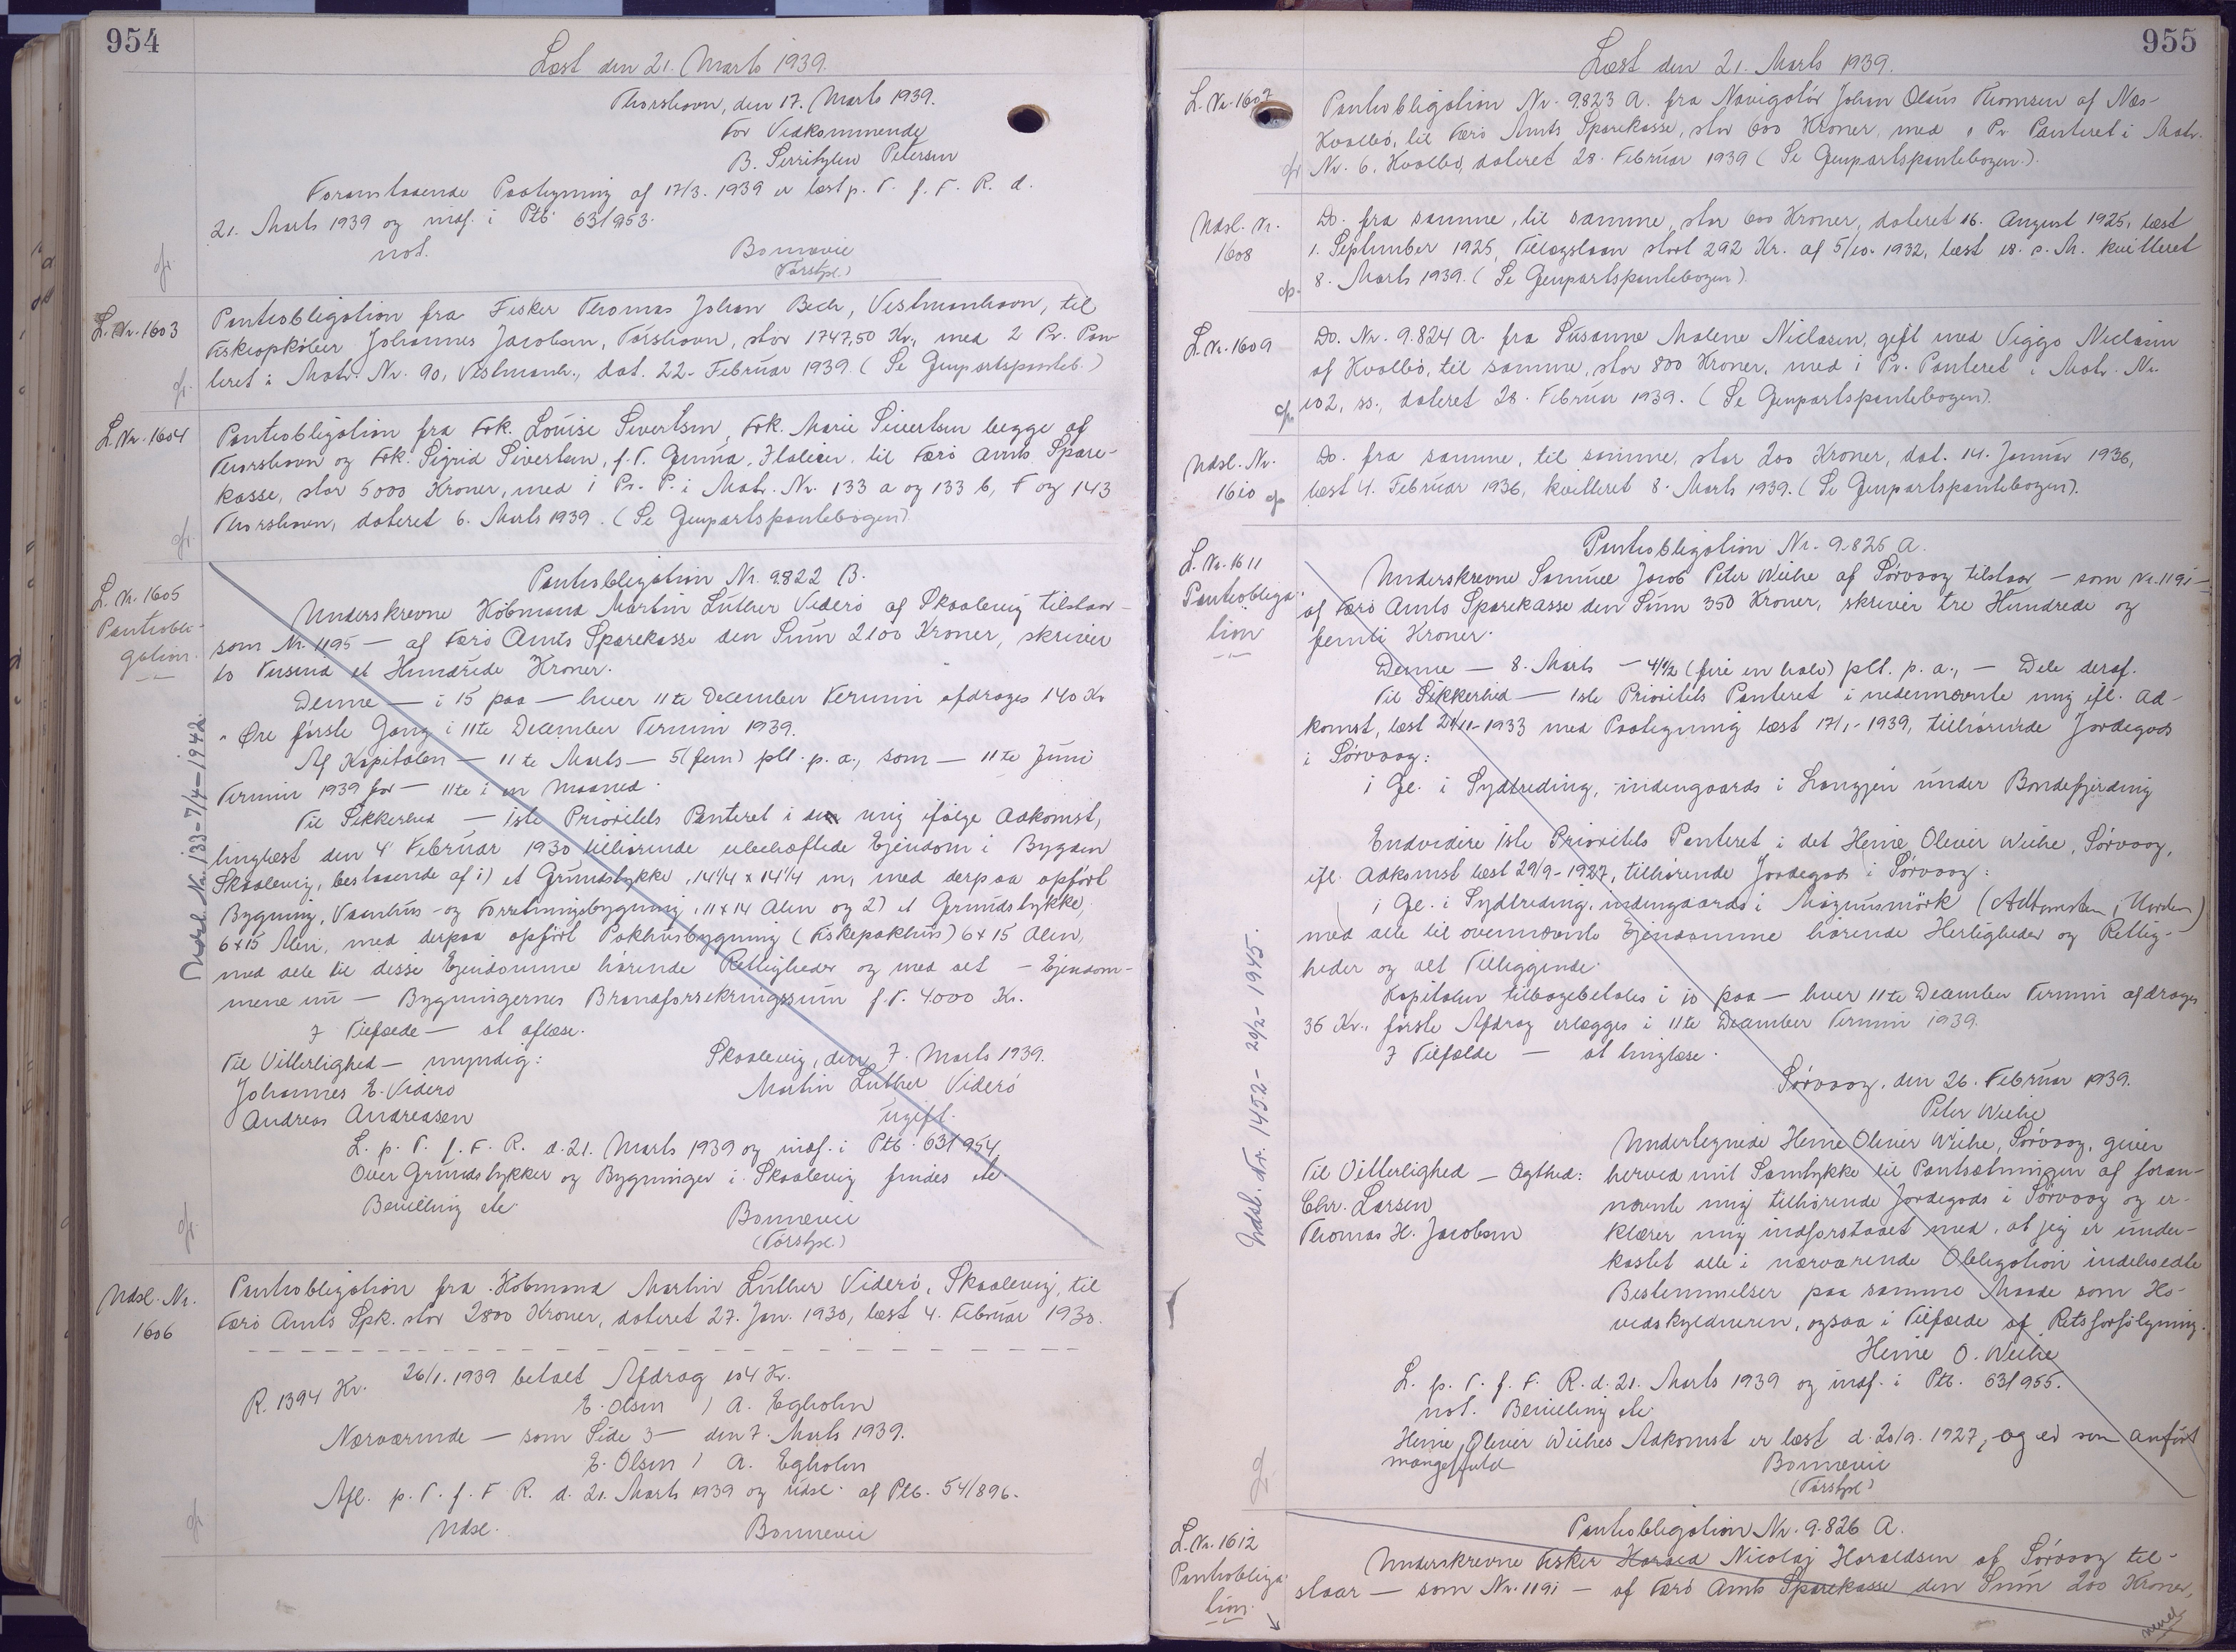 954
Læst den 21. Marts 1939.
Thorshavn, den 17. Marts 1939.
For Vedkommende
B. Serritzlew Petersen
Foranstaaende Paategning af 17/3. 1939 er læst p. T. f. F. R. d.
21. Marts 1939 og indf. i Ptb. 63/953.
not. Bonnevie
(Førstgd.)
L. Nr. 1603
Panteobligation fra Fisker Thomas Johan Bech, Vestmanhavn, til
Fiskeopkøber Johannes Jacobsen, Tórshavn, stor 1747,50 Kr., med 2 Pr. Pan
teret i Matr. Nr. 90, Vestmanh., dat. 22. Februar 1939. (Se Genpartspanteb.)
L. Nr. 1604
Panteobligation fra Frk. Louise Sivertsen, Frk. Marie Sivertsen begge af
Thorshavn og Frk. Sigrid Sivertsen, f. T. Genua, Italien, til Færø Amts Spare-
kasse, stor 5000 Kroner, med 1 Pr. P. i Matr. Nr. 133 a og 133 b, F og 143
Thorshavn, dateret 6. Marts 1939. (Se Genpartspantebogen).
L. Nr. 1605
Panteobli-
gation.
Panteobligation Nr. 9822 B.
Underskrevne Købmand Martin Luther Viderø af Skaalevig tilstaar -
som Nr. 1195 - af Færø Amts Sparekasse den Sum 2100 Kroner, skriver
to Tusind et Hundrede Kroner.
Denne - i 15 paa - hver 11te December Termin afdrages 140 Kr
" Øre første Gang i 11te December Termin 1939.
Af Kapitalen - 11te Marts - 5 (fem) pct. p. a., som - 11te Juni
Termin 1939 for - 11te i en Maaned.
Til Sikkerhed - 1ste Prioritets Panteret i den mig ifølge Adkomst,
tinglæst den 4 Februar 1930 tilhørende ubehæftede Ejendom i Bygden
Skaalevig, bestaaende af 1) et Grundstykke, 14 1/4 x 14 1/4 m, med derpaa opført
Bygning, Vaanhus- og Forretningsbygning, 11 x 14 Alen og 2) et Grundstykke,
6 x 15 Alen, med derpaa opført Pakhusbygning (Fiskepakhus) 6 x 15 Alen,
med alle til disse Ejendomme hørende Rettigheder og med alt - Ejendom-
mene nu - Bygningernes Brandforsikringssum f. T. 4000 Kr.
I Tilfælde - at aflæse.
Til Vitterlighed - myndig: Skaalevig, den 7. Marts 1939.
Johannes E. Viderø Martin Luther Viderø
Andreas Andreasen ugift.
L. p. T. f. F. R. d. 21. Marts 1939 og indf. i Ptb. 63/954.
Over Grundstykker og Bygninger i Skaalevig findes etc.
Bevilling etc.
Bonnevie
(Førstgd.)
Udsl. Nr. 133 - 7/4 - 1942.
Udsl. Nr.
1606
Panteobligation fra Købmand Martin Luther Viderø, Skaalevig, til
Færø Amts Spk. stor 2800 Kroner, dateret 27. Jan. 1930, læst 4. Februar 1930.
R. 1394 Kr. 26/1. 1939 betalt Afdrag 104 Kr.
E. Olsen / A. Egholm
Nærværende - som Side 3 - den 7. Marts 1939.
E. Olsen / A. Egholm
Afl. p. T. f. F. R. d. 21. Marts 1939 og udsl. af Ptb. 54/896.
Udsl. Bonnevie
955
Læst den 21. Marts 1939.
L. Nr. 1607
Panteobligation Nr. 9823 A. fra Navigatør Johan Olaus Thomsen af Næs-
Kvalbø, til Færø Amts Sparekasse, stor 600 Kroner, med 1 Pr Panteret i Matr.
Nr. 6, Kvalbø, dateret 28. Februar 1939 (Se Genpartspantebogen.).
Udsl. Nr.
1608
Do. fra samme, til samme, stor 600 Kroner, dateret 16. August 1925, læst
1. September 1925, Tillægslaan stort 292 Kr. af 5/10. 1932, læst 18. s. M. kvitteret
8. Marts 1939. (Se Genpartspantebogen).
L. Nr. 1609
Do. Nr. 9.824 A. fra Susanne Malene Niclasen, gift med Viggo Niclasen
af Kvalbø, til samme, stor 800 Kroner, med 1 Pr. Panteret i Matr. Nr.
102, ss., dateret 28. Februar 1939. (Se Genpartspantebogen).
Udsl. Nr.
1610
Do. fra samme, til samme, stor 200 Kroner, dat. 14. Januar 1936,
læst 4. Februar 1936, kvitteret 8. Marts 1939. (Se Genpartspantebogen).
L. Nr. 1611
Panteobliga-
tion
Panteobligation Nr. 9.825 A.
Underskrevne Samuel Jacob Peter Weihe af Sørvaag tilstaar - som Nr. 1191 -
af Færø Amts Sparekasse den Sum 350 Kroner, skriver tre Hundrede og
femti Kroner.
Denne - 8. Marts - 4 1/2 (fire en halv) pct. p. a., - Dele deraf.
Til Sikkerhed - 1ste Prioritets Panteret i nedennævnte mig ifl. Ad-
komst, læst 21/11-1933 med Paategning læst 17/1-1939, tilhørende Jordegods
i Sørvaag:
1 Gl. i Sydtreding, indengaards i Langjen under Bondefjerding
Endvidere 1ste Prioritets Panteret i det Heine Oliver Weihe, Sørvaag,
ifl. Adkomst læst 20/9-1927, tilhørende Jordegods i Sørvaag:
1 Gl. i Sydtreding, indengaards i Magnusmørk
med alle til ovennævnte Ejendomme hørende Herligheder og Rettig-
heder og alt Tilliggende.
Kapitalen tilbagebetales i 10 paa - hver 11te December Termin afdrages
35 Kr., første Afdrag erlægges i 11te December Termin 1939.
I Tilfælde - at tinglæse.
Sørvaag, den 26. Februar 1939.
Peter Weihe
Undertegnede Heine Oliver Weihe, Sørvaag, giver
Til Vitterlighed - Ægthed: herved mit Samtykke til Pantsætningen af foran-
Chr. Larsen nævnte mig tilhørende Jordegods i Sørvaag og er-
Thomas H. Jacobsen klærer mig indforstaaet med, at jeg er under-
kastet alle i nærværende Obligation indeholdte
Bestemmelser paa samme Maade som Ho-
vedskyldneren, ogsaa i Tilfælde af Retsforfølgning.
Heine O. Weihe
L. p. T. f. F. R. d. 21. Marts 1939 og indf. i Ptb. 63/955.
not. Bevilling etc.
Heine Oliver Weihes Adkomst er læst d. 20/9. 1927, og er som anført
mangelfuld Bonnevie
(Førstgd)
Udsl. Nr. 1452 - 29/2 - 1945.
L. Nr. 1612
Panteobliga-
tion.
Panteobligation Nr. 9.826 A.
Underskrevne Fisker Harald Nicolaj Haraldsen af Sørvaag til-
staar - som Nr. 1191 - af Færø Amts Sparekasse den Sum 200 Kroner,